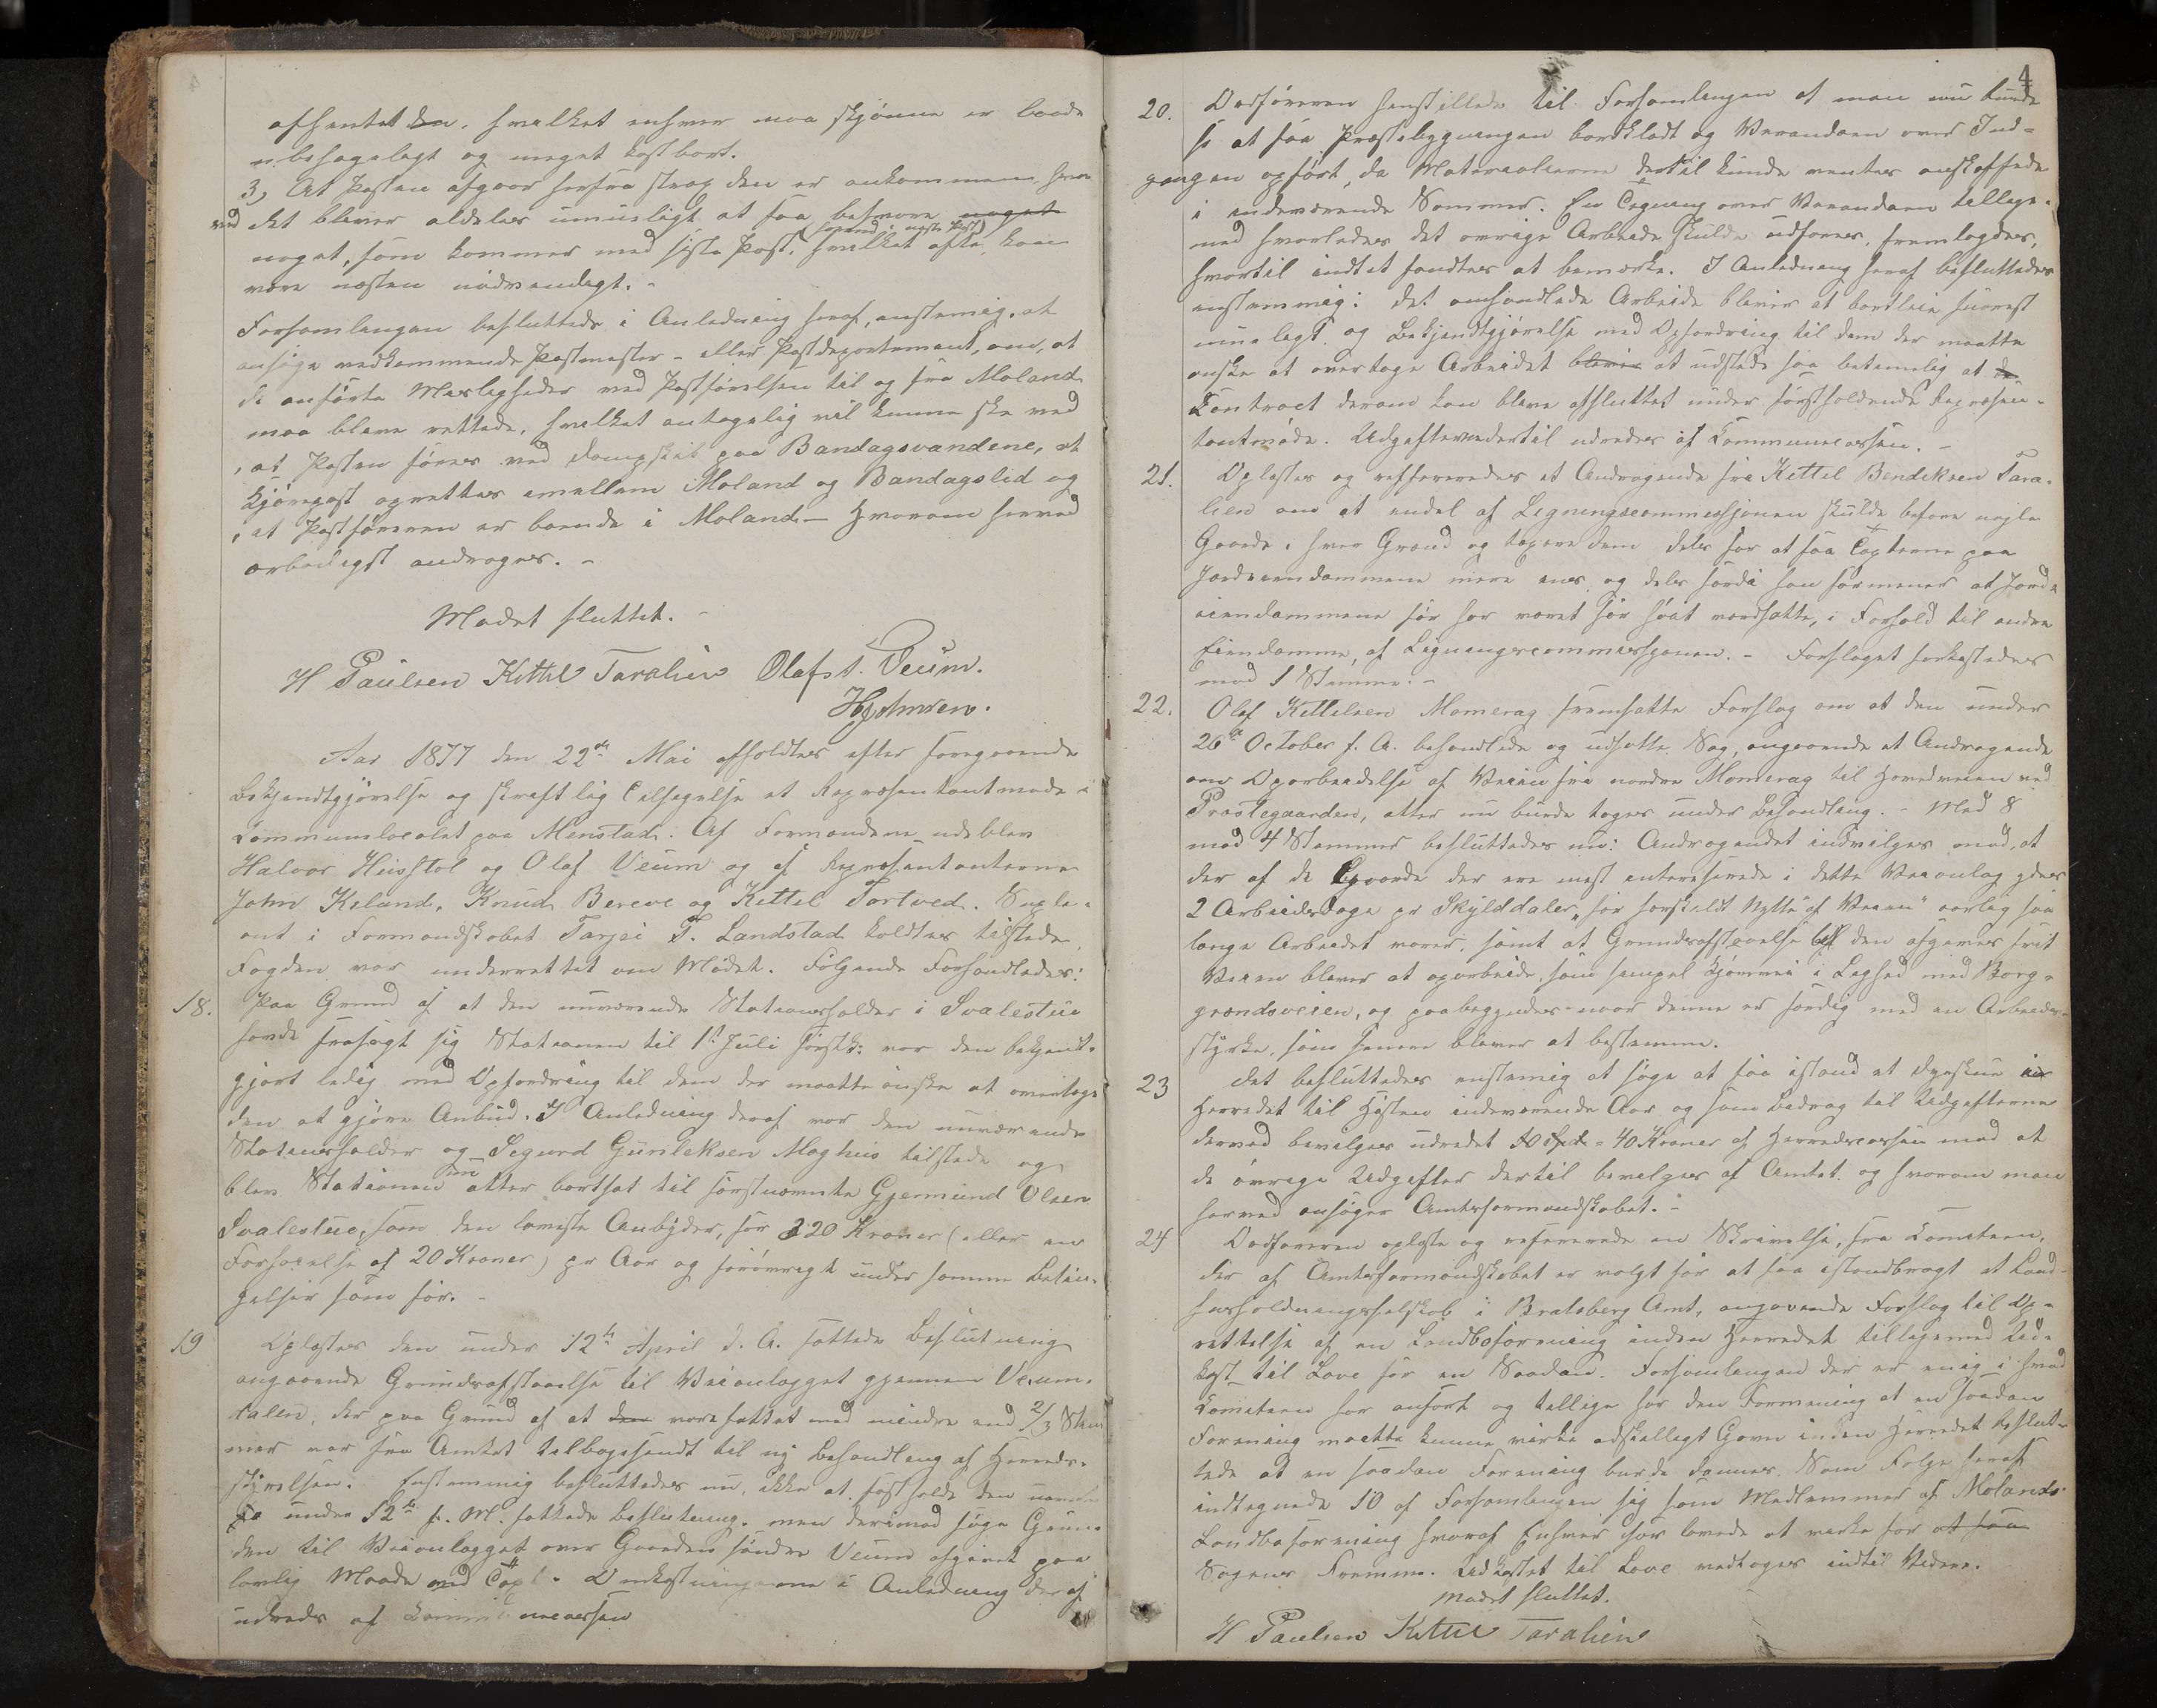 afhentet den, hvilket enhver maa skjønne er baade
ubehageligt og meget kostbart.
3, At Posten afgaar herfra strax den er ankommen, hvor
ved det bliver aldeles umuligt at faa besvare noget
(svared i neste Post)
noget, som kommer med siste Post, hvilket ofte kan
være næsten nødvendigt. -
Forsamlingen besluttede i Anledning heraf, enstemig, at
ansøge vedkommende Postmester - eller Postdepartement, om, at
de anførte Misligheder ved Postførelsen til og fra Moland
maa blive rettede, hvilket antagelig vil kunne ske ved
, at Posten føres ved Dampskib paa Bandagsvandene, at
Kjørepost oprettes emellem Moland og Bandagslid og
, at Postføreren er boende i Moland - Hvorom herved
arbødigst andrages. -
Mødet sluttet. -
H Paulsen Kittil Taralien Olaf S. Veum.
HGjohnsen.
Aar 1877 den 22de Mai afholdtes efter foregaaende
Bekjendtgjørelse og skriftlig Tilsigelse et Repræsentantmøde i
Kommunelocalet paa Menstad. Af Formændene udeblev
Halvor Husstøl og Olaf Veum og af Repræsentanterne
John Kiland, Knud Bereve og Kittil Tortved. Suple-
ant i Formandskabet Tarjei T. Landstad holdtes tilstede.
Fogden var underrettet om Mødet. Følgende Forhandledes:
18. Paa Grund af at den nuværende Stationsholder i Svalestue
havde frasagt sig Stationen til 1st Juli førstk: var den bekjendt-
gjort ledig med Opfordring til dem der maatte ønske at overtage
den at gjøre Anbud. I Anledning deraf var den nuværende
Stationsholder og Sigurd Gunleksen Moghus tilstede og
blev Stationen nu atter bortsat til førstnævnte Gjermund Olsen
Svalestue, som den laveste Anbyder, for 320 Kroner (eller en
Forhøielse af 20 Kroner) pr Aar og forøvrigt under samme Betin-
gelser som før. -
19 Oplæstes den under 12te April d. A. fattede Beslutning
angaaende Grundafstaaelse til Veianlægget gjennem Veum-
dalen, der paa Grund af at den vare fattet med mindre end 2/3 Stem
mer var fra Amtet tilbagesendt til ny Behandling af Herreds-
styrelsen. Enstemmig besluttedes nu, ikke at fastholde den
under 12te f. M. fattede Beslutning, men derimod søge Grun-
den til Veianlægget over Gaarden søndre Veum afgivet paa
lovlig Maade ved Taxt. Omkostningerne i Anledning deraf
udredes af Kommunecassen
4
20. Ordføreren henstillede til Forsamlingen at man nu burde
se at faa Præstebygningen bordklædt og Verandaen over Ind-
gangen opført, da Materialierne dertil kunde ventes anskaffede
i indeværende Sommer. En Tegning over Verandaen tillige-
med hvorledes det øvrige Arbeide skulde udføres, fremlagdes,
hvortil indtet fandtes at bemærke. I Anledning heraf besluttedes
enstemmig: det omhandlede Arbeide bliver at bortleie snarest
muelegt og Bekjendtgjørelse med Opfordring til dem der maatte
ønske at overtage Arbeidet bliver at udstede saa betimelig at de
Contract derom kan blive afsluttet under førstholdende Repræsen-
tantmøde. Udgifterne dertil udredes af Kommunecassen. -
21. Oplæstes og reffereredes et Andragende fra Kittil Bendiksen Tara-
lien om at endel af Ligningscommissjonen skulde befare nogle
Gaarde i hver Grænd og taxere dem dels for at faa Taxterne paa
Jordeiendommene mere ens og dels fordi han formener at Jord-
eiendommene før har været for høit værdsatte, i Forhold til andre
Eiendomme, af Ligningscommissjonen. - Forslaget forkastedes
mod 1 Stemme. -
22. Olaf Kittilsen Momerag fremsatte Forslag om at den under
26de October f. A. behandlede og udsatte Sag, angaaende et Andragende
om Oparbeidelse af Veien fra nordre Momerag til Hovedveien ved
Præstegaarden, atter nu burde tages under Behandling. - Med 8
mod 4 Stemmer besluttedes nu: Andragendet indvilges med, at
der af de Gaarde der ere mest intereserede i dette Veianlæg ydes
2 Arbeidsdage pr Skylddaler „for særskildt Nytte af Veien" aarlig saa
længe Arbeidet varer, samt at Grundafstaaelse til den afgives frit
Veien bliver at oparbeide som simpel Kjørevei i Lighed med Borg-
grændsveien, og paabegyndes naar denne er færdig med en Arbeids-
styrke, som senere bliver at bestemme.
23 Det besluttedes enstemig at søge at faa istand et Dyrskue in
Herredet til Høsten indeværende Aar og som Bidrag til Udgifterne
derved bevilges udredet 10 Spd = 40 Kroner af Herredscassen mod at
de øvrige Udgifter dertil bevilges af Amtet og hvorom man
herved ansøger Amtsformandskabet. -
24 Ordføreren oplæste og refererede en Skrivelse, fra Komiteen,
der af Amtsformandskabet er valgt for at faa istandbragt et Land-
husholdningsselskab i Bratsberg Amt, angaaende Forslag til Op-
rettelse af en Landboforening inden Herredet tilligemed Ud-
kast til Love for en Saadan. Forsamlingen der er enig i hvad
Komiteen har anført og tillige har den Formening at en saadan
Forening maatte kunne virke adskilligt Gavn inden Herredet beslut-
tede at en saadan Forening burde dannes. Som Følge heraf
indtegnede 10 af Forsamlingen sig som Medlemmer af Molands
Landboforening hvoraf Enhver især lovede at virke for at faa
Sagens Fremme. Udkastet til Love vedtoges indtil Videre.
Mødet sluttet.
H Paulsen Kittil Taralien